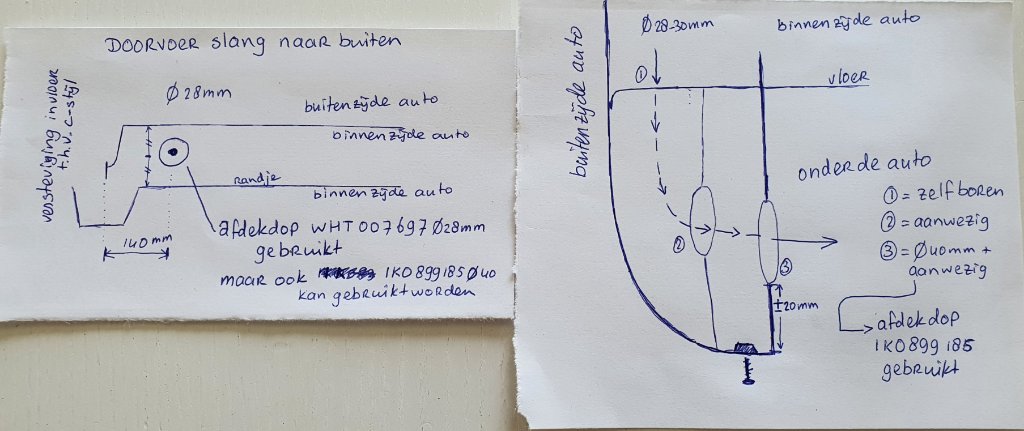 DOORVOER slang naar buiten
versteviging in vloer
t.h.v. c-stijl
Ø28mm
buitenzijde auto
binnenzijde auto
randje
binnenzijde auto
140mm
afdekdop WHT007697 Ø28mm
gebruikt
maar ook 1K0899185 Ø40
kan gebruikt worden
buitenzijde auto
Ø28-30mm
binnenzijde auto
①
vloer
onder de auto
① = zelf boren
② = aanwezig
③ = Ø40mm +
aanwezig
②
③
±20mm
afdekdop
1K0899 185
gebruikt